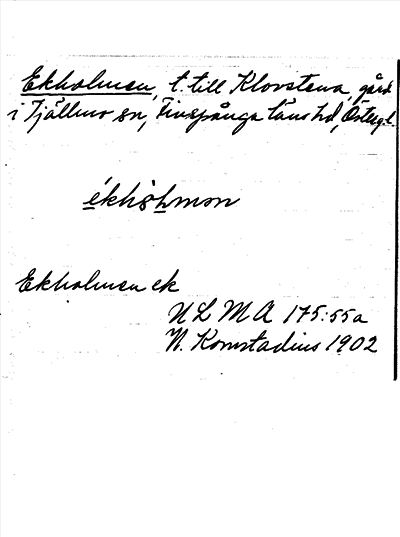 Ekholmen, t. till Klovstena, gård
i Tjällmo sn, Finspånga läns hd, Östergl.
Ekholmen ek
ULMA 175:55a
N. Konstadius 1902